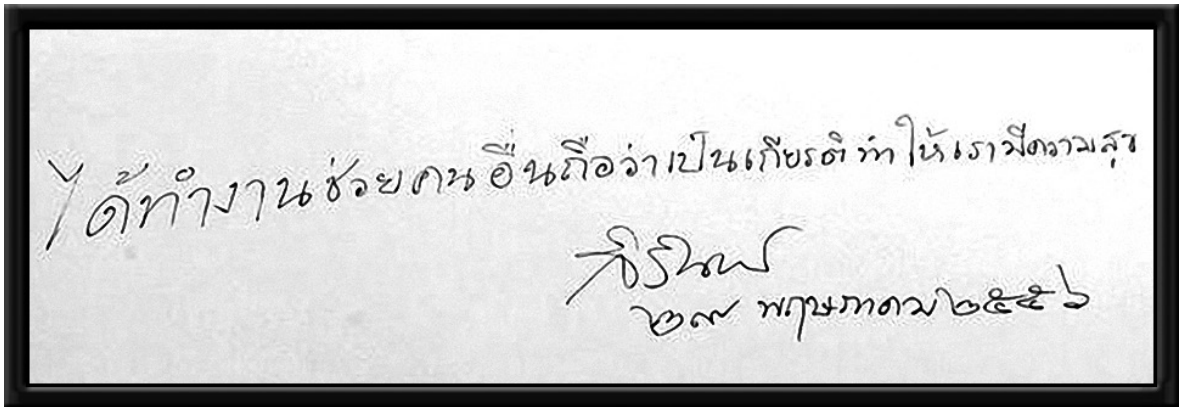 ได้ทำงานช่วยคนอื่นถือว่าเป็นเกียรติทำให้เรามีความสุข
๒๙ พฤษภาคม ๒๕๕๖